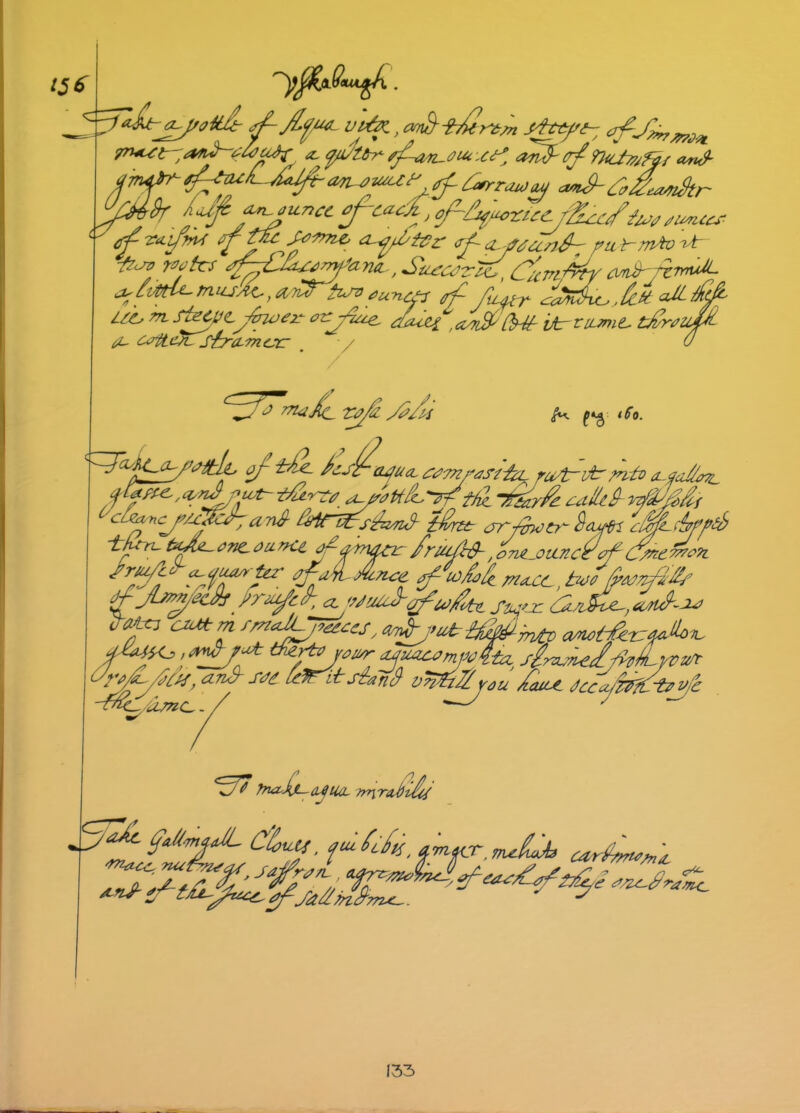 156
Vskabaugh.
Take a pottle of Aqua vitæ, and therein steepe, of Sinnmom
mace, and cloues, a quiter of an ounce, and of nutmegs and
ginger of each halfe an ounce, of Carraway and Colleander
seeds halfe an ounce of each, of Liquorice sliced two ounces
of raisins of the sonne a quiter of a pound put into it
two rootes of Ellacompana, Succorie, Cumfry and fennill
a little muske, and two ounces of suger candie, lett all these
lie in steepe fower or fiue daies, and lett it runne through
a cotten strainer
To make rosa solis
pag 160.
Take a pottle of the best aqua composita, put it into a gallon
glasse, and put therto a pottle of the hearbe called rosa solis
cleane picked, and lett it stand three or fower dayes close stopped
then take one ounce of ginger bruised, one ounce of Cinemon
bruised a quarter of an ounce of whole mace, two
of bruised, a pound of white suger Candie, and 20
dates cutt in small peeces, and put these into another gallon
glasse, and put therto your aquacomposita, strained from your
rosa solis, and soe lett it stand vntill you haue occasion to vse
the same.
To make aqua mirabilis
Take Gallingall Cloues, quibibs, ginger, mellilots cardimomia
mace, nutmegs, saffron, of each of these one dramc
and of the juce of sallindine.
133